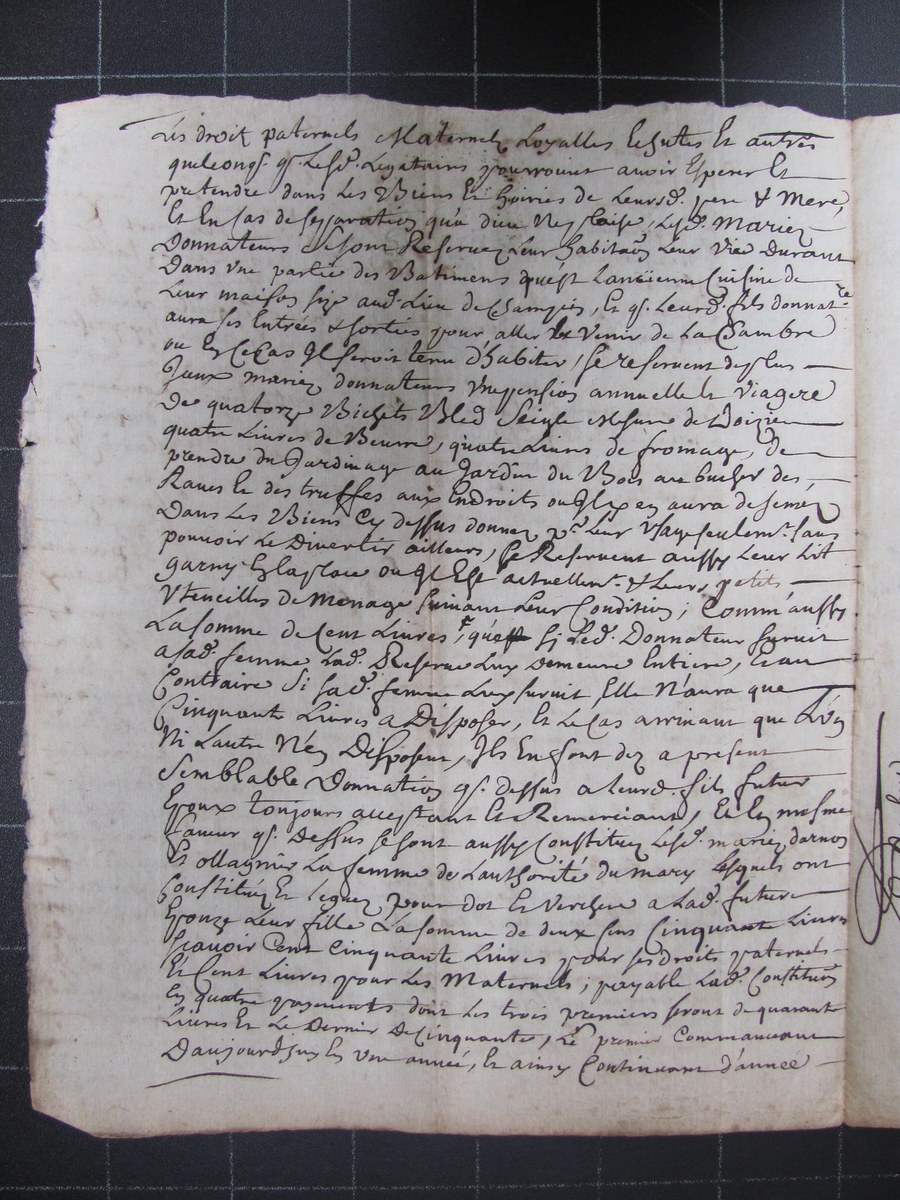 Les droit paternels Maternels Loyalles Echutes Et autres
quelconqs. qs. Lesd. Legataires pourroient avoir Esperer Et
pretendre dans Les Biens Et hoiries de Leursd. pere & Mere,
Et En Cas de separation qu'a dieu Ne plaise, Lesd. Mariez
Donnateurs se sont Reservez Leur habitaon Leur Vie Durant
Dans Une partie des Batimens quest Lancienne Cuisine de
Leur maison size aud. Lieu de Et qs. Leurd. fils donnatre
aura ses Entrées & sorties pour aller & Venir de La Chambre
ou En Ce Cas Il seroit tenu d'habiter, se reservent de plus
Iceux mariez donnateurs Une pension annuelle Et Viagere
De quatorze Bichets Bled Seigle Mesure de
quatre Livres de Beurre, quatre Livres de fromage, de
prendre du Jardinage au Jardin du Bois au bucher des,
Raves Et des truffes aux Endroits ou Il y en aura de semez
Dans Les Biens Cy dessus donnez pr. Leur Usage seulemt. sans
pouvoir Le Divertir ailleurs, se Reservent aussy Leur Lit
garny En la place ou Il Est actuellemt. & Leurs petits
Utencilles de Menage suivant Leur Condition; Comm'aussy
La somme de Cent Livres, que si Led. Donnateur survit
a sad. femme Lad. Reserve Luy Demeure Entiere, Et au
Contraire Si sad. femme Luy survit Elle N'aura que
Cinquante Livres a Disposer, Et Le Cas arrivant que L'un
Ni Lautre N'en Disposent, Ils En font dez a present
Semblable Donnation qs. dessus a leurd. fils futur
Epoux toujours acceptant Et Remerciant, Et En mesme
faveur qs. Dessus se sont aussy Constituez Lesd. mariez darnos
Et ollagnier La femme de Lauthorité du mary Lesquels ont
Constitué Et Leguez pour dot Et Verchere a Lad. future
Epouze Leur fille La somme de deux Cens Cinquante Livres
scavoir Cent Cinquante Livres pour ses droits paternels
Et Cent Livres pour Les Maternels; payable Lad. Constituon
En quatre payements dont Les trois premiers seront de quarante
Livres Et Le Dernier De Cinquante, Le premier Commancant
Daujourdhuy En Une année, Et ainsy Continuant d'année